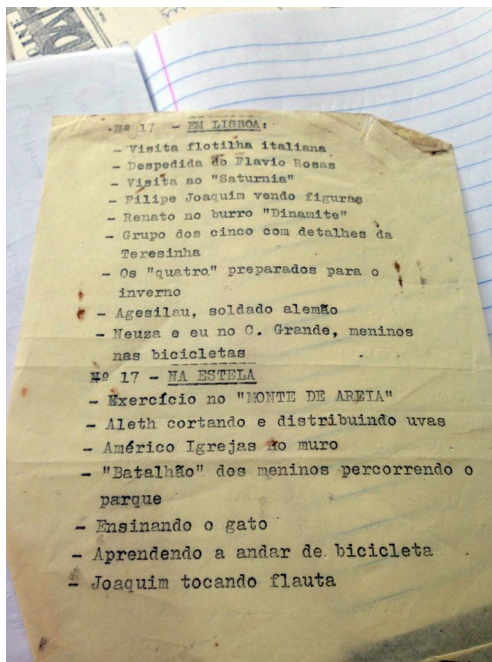 Nº 17 - EM LISBOA:
- Visita flotilha italiana
- Despedida do Flavio Rosas
- Visita ao "Saturnia"
- Filipe Joaquim vendo figuras
- Renato no burro "Dinamite"
- Grupo dos cinco com detalhes da
Teresinha
- Os "quatro" preparados para o
inverno
- Agesilau, soldado alemão
- Neuza e eu no C. Grande, meninos
nas bicicletas
Nº 17 - NA ESTELA
- Exercício no "MONTE DE AREIA"
- Aleth cortando e distribuindo uvas
- Américo Igrejas no muro
- "Batalhão" dos meninos percorrendo o
parque
- Ensinando o gato
- Aprendendo a andar de bicicleta
- Joaquim tocando flauta